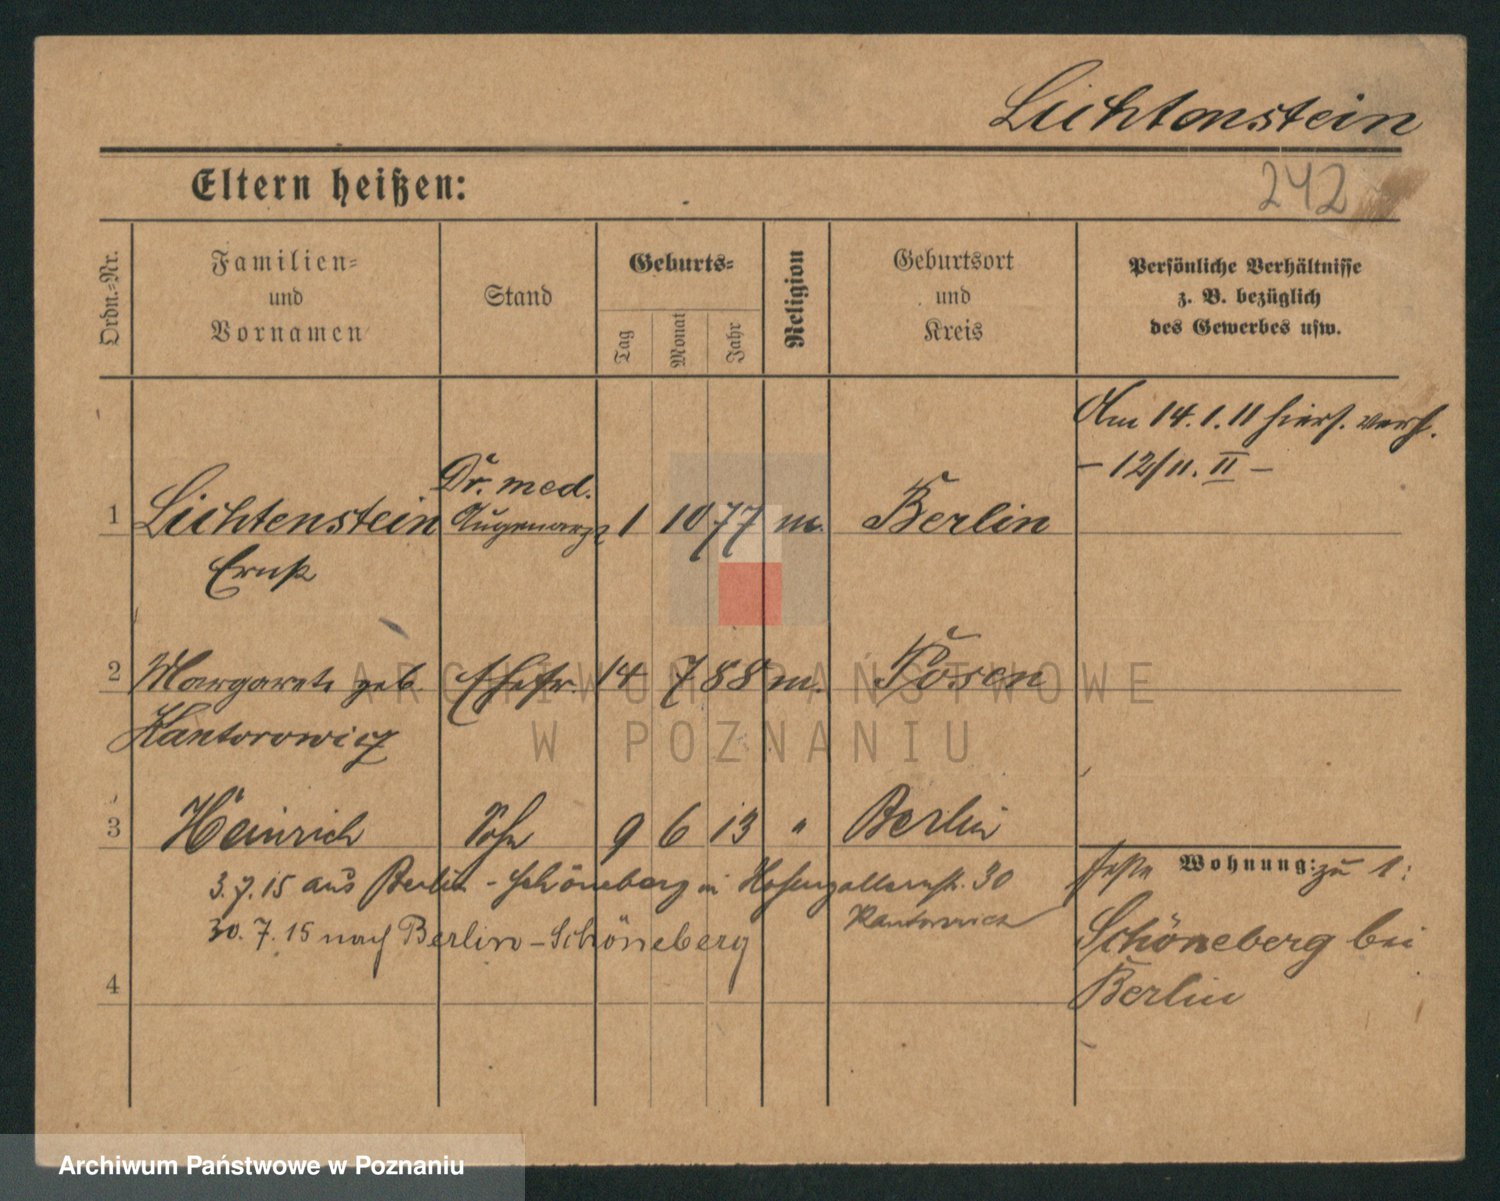 Lichtenstein
Eltern heißen:
242
Ordn.-Nr.
Familien-
und
Vornamen
Stand
Geburts-
Tag
Monat
Jahr
Religion
Geburtsort
und
Kreis
Persönliche Verhältnisse
z. B. bezüglich
des Gewerbes usw.
Am 14. 1. 11 hiers. verh.
- 12/11. II -
Dr. med.
1 Lichtenstein Augenarzt 1 10 77 m. Berlin
Ernst
2 Margarete geb. Ehefr. 14 7 88 m. Posen
Kantorowicz
3 Heinrich Sohn 9 6 13 " Berlin
feste Wohnung: zu 1:
3. 7. 15 aus Berlin - Schöneberg in 30
Kantorowicz
30. 7. 15 nach Berlin - Schöneberg
Schöneberg bei
Berlin
4
ARCHIWUM PAŃSTWOWE
W POZNANIU
Archiwum Państwowe w Poznaniu